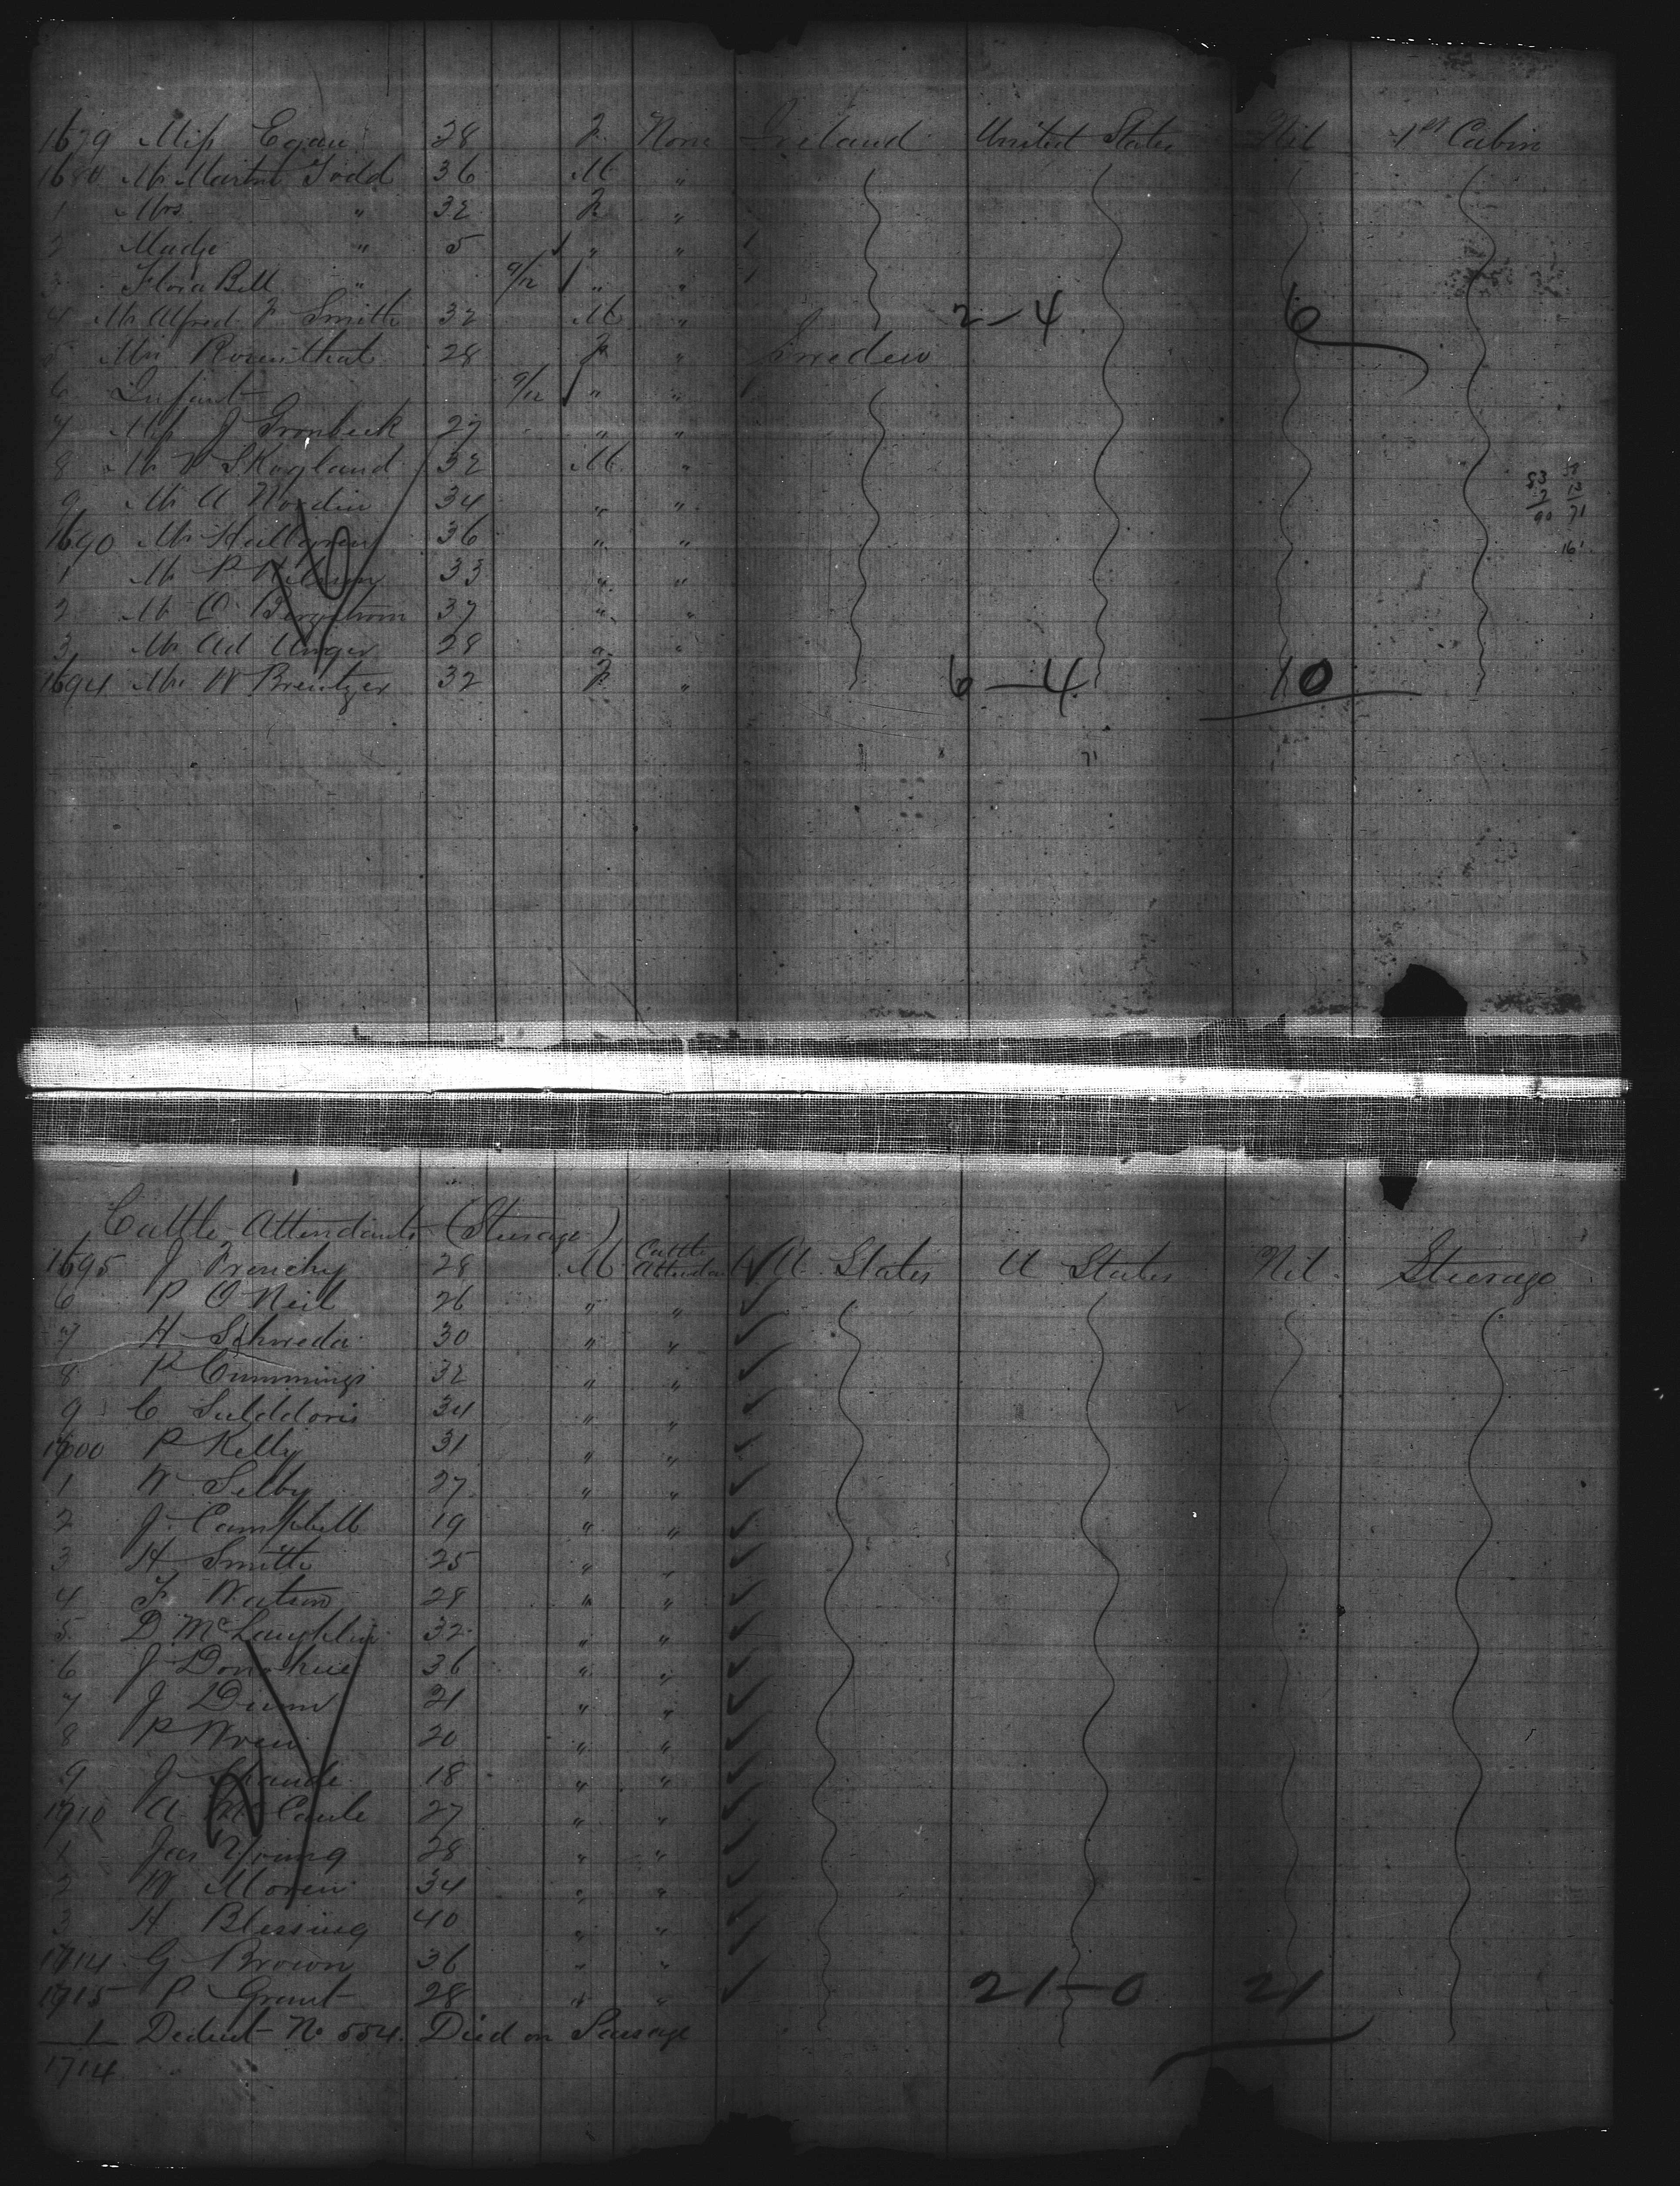 1679 Miss Egan 28 F. None Ireland United States Nil 1st Cabin
1680 Mr Martin Todd 36 M "
1 Mrs " 32 F "
2 Madge " 5 " "
3 Flora Bell " 9/12 " "
4 Mr Alfred F Smith 32 M " 2-4 6
5 Mrs Rosenthal 28 F " Sweden
6 Infant 9/12 " "
7 Miss J Gronbeck 27 " "
8 Mr V Skogland 32 M "
9 Mr A Nordin 34 " "
1690 Mr Hallgren 36 " "
1 Mr P Nilsson 33 " "
2 Mr O Bergstrom 37 " "
3 Mr Ad Unger 28 " "
1694 Mrs W Brentzer 32 F " 6-4 10
71
Cattle Attendants (Steerage)
1695 J Frenchy 28 M Cattle Attendant U States U States Nil Steerage
6 P O Neil 26 " "
7 H Schweda 30 " "
8 P Cummings 32 " "
9 C 34 " "
1700 P Kelly 31 " "
1 W Selby 27 " "
2 J Campbell 19 " "
3 H Smith 25 " "
4 F Watson 28 " "
5 D McLaughlin 32 " "
6 J Donohue 36 " "
7 J Dunn 21 " "
8 P Wren 20 " "
9 J 18 " "
1710 A McCaule 27 " "
1 Jas Young 28 " "
2 W Moren 34 " "
3 H Blessing 40 " "
1714 G Brown 36 " "
1715 P Grant 28 " " 21-0 21
1 Deduct No 554. Died on Passage
1714